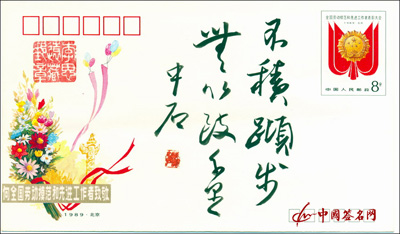 不積蹞步
無以致千里
中石
全国劳动模范和先进工作者表彰大会
中国人民邮政 8分
向全国劳动模范和先进工作者致敬
1989·北京
中国签名网